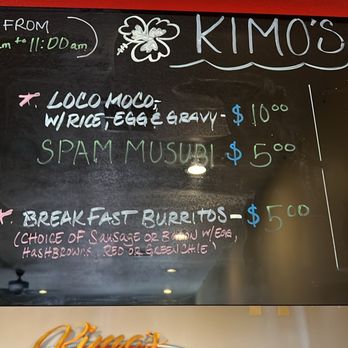 FROM
am to 11:00am)
KIMO'S
* LOCO MOCO,
W/RICE, EGG & GRAVY - $ 10 00
SPAM MUSUBI $ 5 00
* BREAKFAST BURRITOS - $ 5 00
(CHOICE OF SAUSAGE OR BACON W/EGG,
HASHBROWNS, RED OR GREEN CHILE)
Kimo's